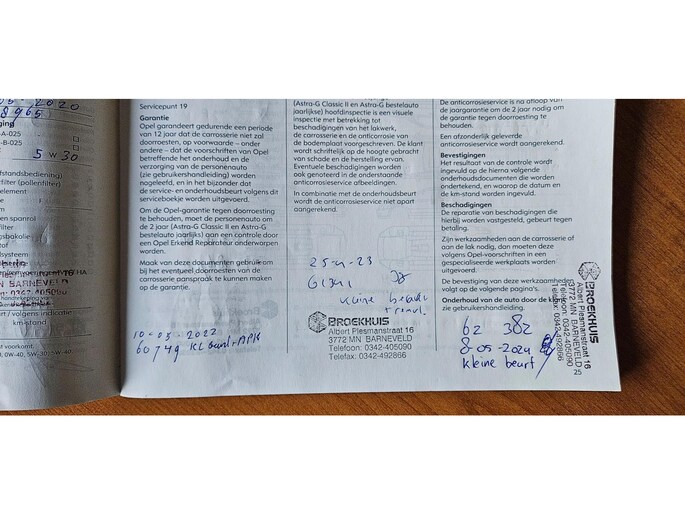 05-2020
8965
ging
-A-025
-B-025
5 W 30
fstandsbediening)
filter (pollenfilter)
en
n spanrol
n filter
ngsbakolie
vloeistof
systeem
N BARNEVELD
ort / volgens indicatie
km-stand
t voorkomt.
0W-40, 5W-30, 5W-40.
Servicepunt 19
Garantie
Opel garandeert gedurende een periode
van 12 jaar dat de carrosserie niet zal
doorroesten, op voorwaarde – onder
andere – dat de voorschriften van Opel
betreffende het onderhoud en de
verzorging van de personenauto
(zie gebruikershandleiding) worden
nageleefd, en in het bijzonder dat
de service- en onderhoudsbeurt volgens dit
serviceboekje worden uitgevoerd.
Om de Opel-garantie tegen doorroesting
te behouden, moet de personenauto om
de 2 jaar (Astra-G Classic II en Astra-G
bestelauto jaarlijks) aan een controle door
een Opel Erkend Reparateur onderworpen
worden.
Maak van deze documenten gebruik om
bij het eventueel doorroesten van de
carrosserie aanspraak te kunnen maken
op de garantie.
10-05-2022
60749 KL beurt+APK
(Astra-G Classic II en Astra-G bestelauto
jaarlijks) hoofdinspectie is een visuele
inspectie met betrekking tot
beschadigingen van het lakwerk,
de carrosserie en de anticorrosie van
de bodemplaat voorgeschreven. De klant
wordt schriftelijk op de hoogte gebracht
van schade en de herstelling ervan.
Eventuele beschadigingen worden
ook genoteerd in de onderstaande
anticorrosieservice afbeeldingen.
In combinatie met de onderhoudsbeurt
wordt de anticorrosieservice niet apart
aangerekend.
kleine beurt
BROEKHUIS
Albert Plesmanstraat 16
3772 MN BARNEVELD
Telefoon: 0342-405090
Telefax: 0342-492866
De anticorrosieservice is na afloop van
de jaargarantie om de 2 jaar nodig om
de garantie tegen doorroesting te
behouden.
Een afzonderlijk geleverde
anticorrosieservice wordt aangerekend.
Bevestigingen
Het resultaat van de controle wordt
ingevuld op de hierna volgende
onderhoudsdocumenten die worden
ondertekend, en waarop de datum en
de km-stand worden ingevuld.
Beschadigingen
De reparatie van beschadigingen die
hierbij worden vastgesteld, gebeurt tegen
betaling.
Zijn werkzaamheden aan de carrosserie of
aan de lak nodig, dan moeten deze
volgens Opel-voorschriften in een
gespecialiseerde werkplaats worden
uitgevoerd.
De bevestiging van deze werkzaamheden
volgt op de volgende pagina's.
Onderhoud van de auto door de klant
zie gebruikershandleiding.
62 382
8-05-2024
kleine beurt
25
BROEKHUIS
Albert Plesmanstraat 16
3772 MN BARNEVELD
Telefoon: 0342-405090
Telefax: 0342-492866